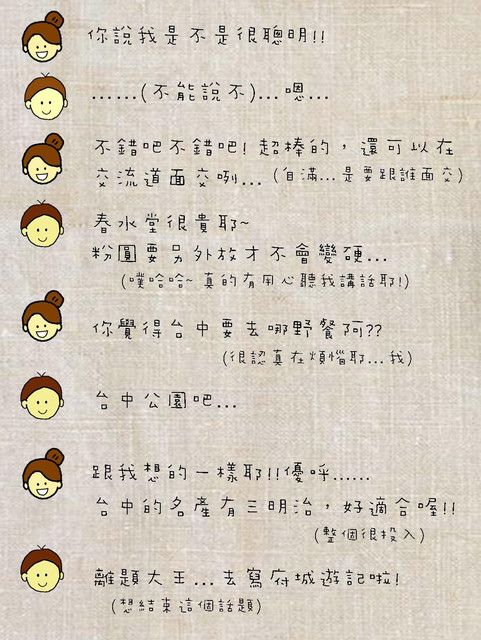 你說我是不是很聰明!!
......(不能說不)...嗯...
不錯吧不錯吧!超棒的，還可以在
交流道面交咧...(自滿...是要跟誰面交)
春水堂很貴耶~
粉圓要另外放才不會變硬...
(噗哈哈~真的有用心聽我講話耶!)
你覺得台中要去哪野餐阿??
(很認真在煩惱耶...我)
台中公園吧...
跟我想的一樣耶!!優呼......
台中的名產有三明治，好適合喔!!
(整個很投入)
離題大王...去寫府城遊記啦!
(想結束這個話題)